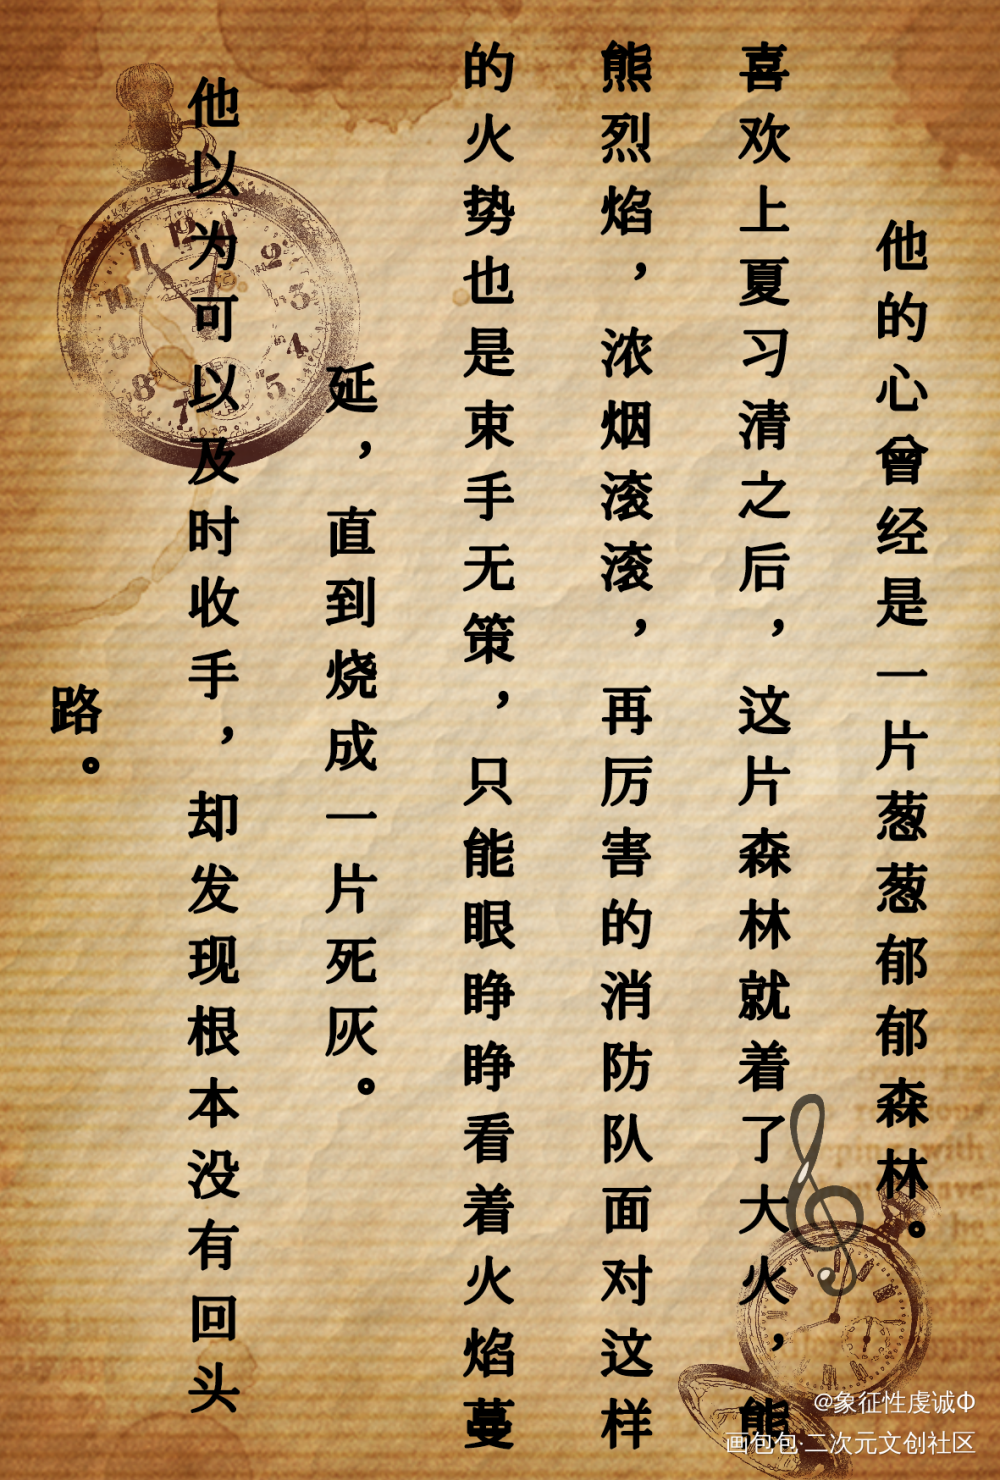 他的心曾经是一片葱葱郁郁森林。
喜欢上夏习清之后，这片森林就着了大火，熊
熊烈焰，浓烟滚滚，再厉害的消防队面对这样
的火势也是束手无策，只能眼睁睁看着火焰蔓
延，直到烧成一片死灰。
他以为可以及时收手，却发现根本没有回头
路。
@象征性虔诚Φ
画包包·二次元文创社区